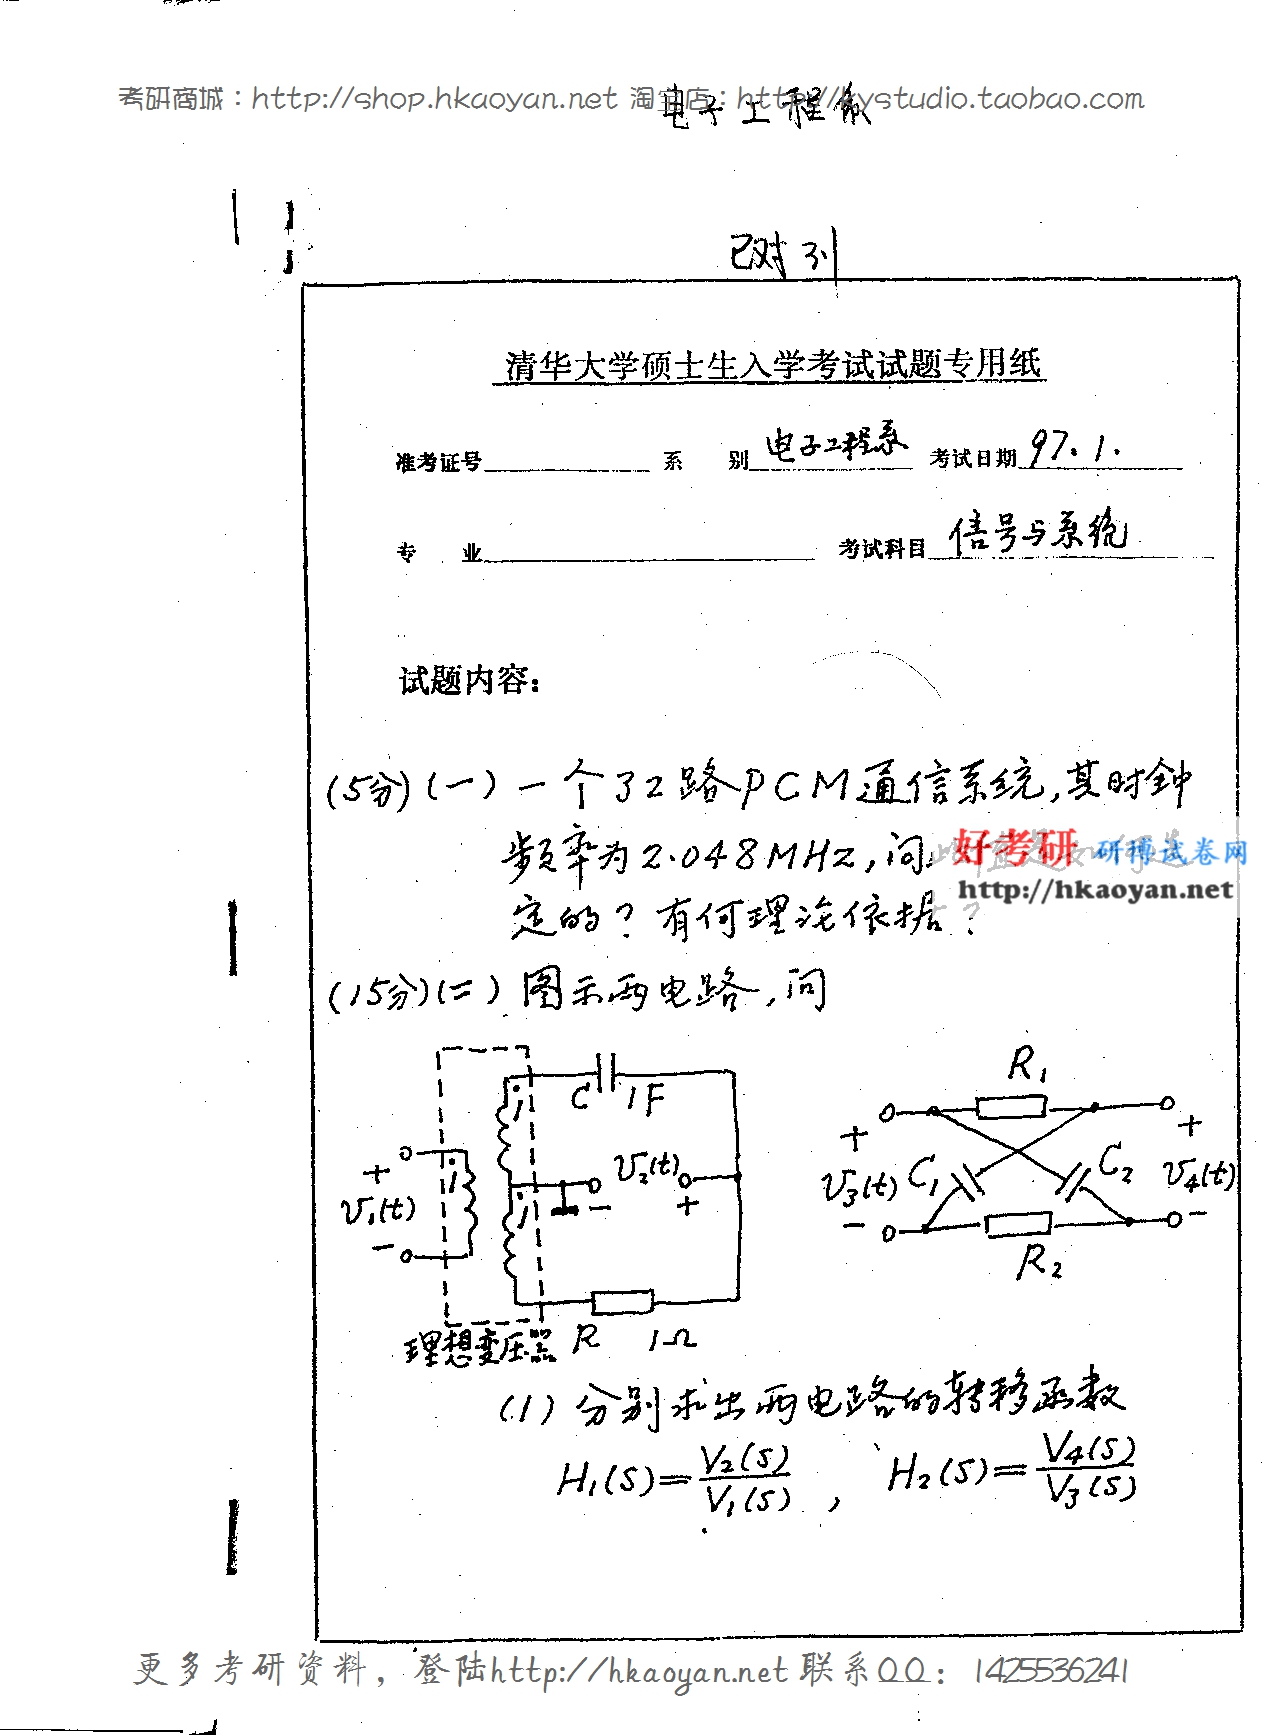 考研商城：http://shop.hkaoyan.net 淘宝店：http://kystudio.taobao.com
电子工程系
已对 引
清华大学硕士生入学考试试题专用纸
准考证号 系 别 电子工程系 考试日期 97.1.
专 业 考试科目 信号与系统
试题内容：
(5分)(一) 一个32路PCM通信系统,其时钟
频率为2.048MHz,问
好考研 研博试卷网
http://hkaoyan.net
定的?有何理论依据?
(15分)(二) 图示两电路,问
C 1F
+ υ1(t) −
υ2(t)
− +
R 1Ω
理想变压器
R1
+ υ3(t) − C1 C2 + υ4(t) −
R2
(1) 分别求出两电路的转移函数
H1(S)=V2(S)/V1(S), H2(S)=V4(S)/V3(S)
更多考研资料，登陆http://hkaoyan.net 联系QQ：1425536241